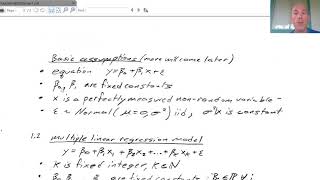 Basic assumptions (more will come later)
• equation y=β₀+β₁x+ε
• β₀, β₁ are fixed constants
• x is a perfectly measured non-random variable
• ε ~ Normal (μ=0, σ²) iid, σ²x is constant
1.2 multiple linear regression model
y = β₀+β₁x₁+β₂x₂+...+βₖxₖ+ε
• K is fixed integer, K∈ℕ
are fixed constants